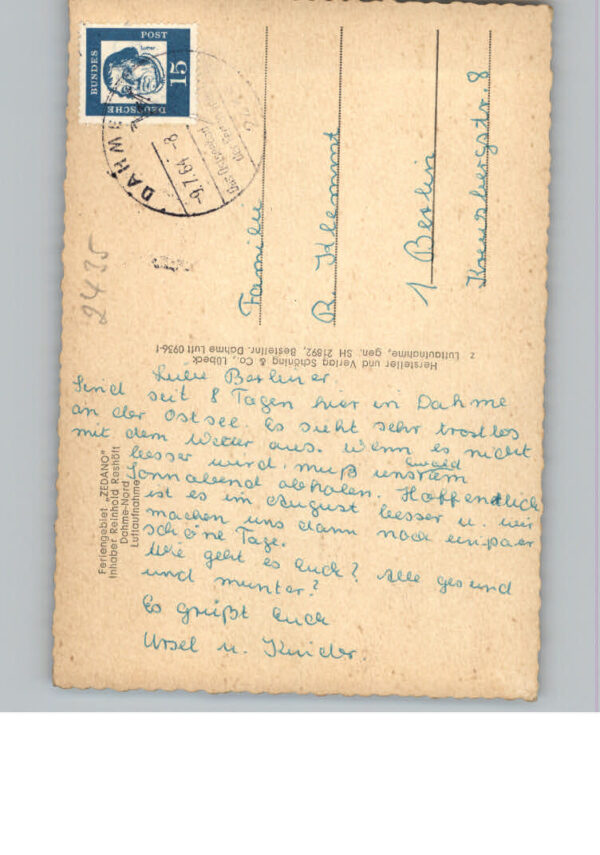 BUNDES
POST
DEUTSCHE
15
Luther
DAHME
-9.7.64.-8
Das Ostseebad
2435
Familie
R. Klemmt
1 Berlin
Kreuzbergstr. 8
Hersteller und Verlag Schöning & Co., Lübeck
z Luftaufnahme, gen. SH 21892, Bestellnr. Dahme Luft 0936-f
Feriengebiet „ZEDANO"
Inhaber Reinhold Reshöft
Dahme-Nord
Luftaufnahme
Liebe Berliner
Sind seit 8 Tagen hier in Dahme
an der Ostsee. Es sieht sehr trostlos
mit dem Wetter aus. Wenn es nicht
besser wird, muß uns Ewald
Sonnabend abholen. Hoffendlich
ist es im August besser u. wir
machen uns dann noch ein paar
schöne Tage.
Wie geht es Euch? Alle gesund
und munter?
Es grüßt Euch
Ursel u. Kinder.